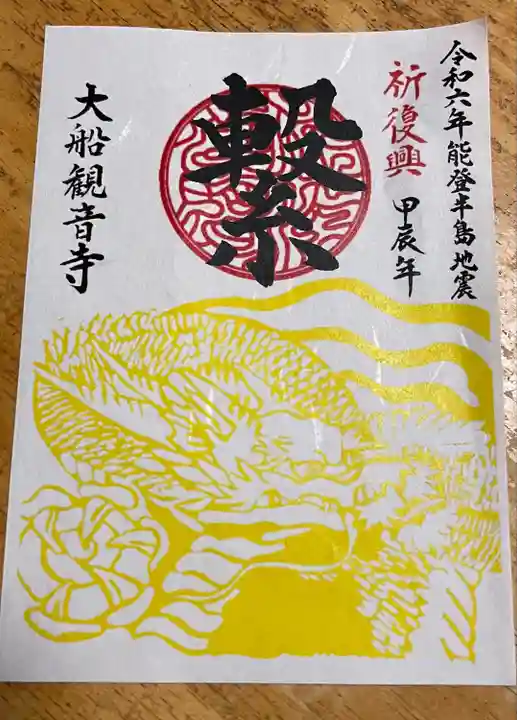 令和六年能登半島地震
祈復興
甲辰年
繋
大船観音寺